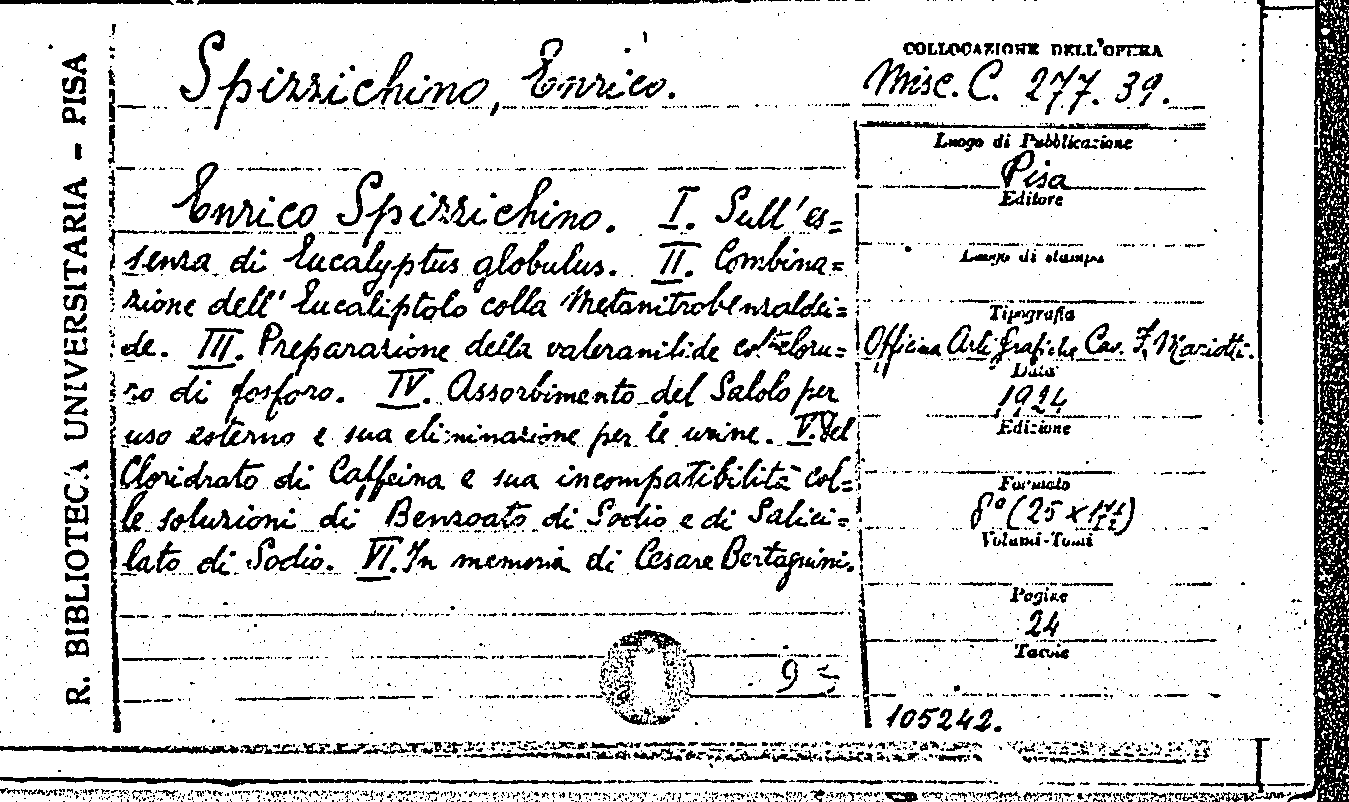 R. BIBLIOTECA UNIVERSITARIA - PISA
Spizzichino, Enrico.
Enrico Spizzichino. I. Sull'es=
senza di Eucalyptus globulus. II. Combina=
zione dell'Eucaliptolo colla Metanitrobenzaldei=
de. III. Preparazione della valeranilide col cloru=
ro di fosforo. IV. Assorbimento del Salolo per
uso esterno e sua eliminazione per le urine. V. Del
Cloridrato di Caffeina e sua incompatibilità col=
le soluzioni di Benzoato di Sodio e di Salici=
lato di Sodio. VI. In memoria di Cesare Bertagnini.
9
COLLOCAZIONE DELL'OPERA
Misc. C. 277. 39.
Luogo di Pubblicazione
Pisa
Editore
Luogo di stampa
Tipografia
Officina Arti Grafiche Cav. F. Mariotti.
Data
Edizione
Formato
8° (25 x
Volumi-Tomi
Pagine
24
Tavole
105242.